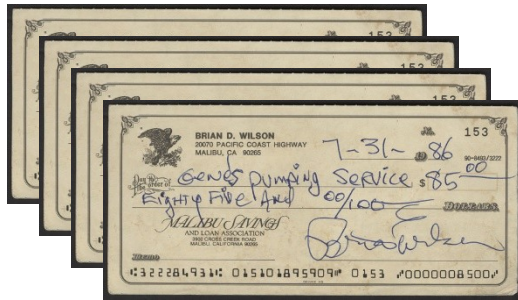 153
153
153
No. 153
BRIAN D. WILSON
20070 PACIFIC COAST HIGHWAY
MALIBU, CA 90265
7-31- 19 86
90-8493/3222
Pay to the order of Gene's Pumping Service $ 85 00
Eighty Five And 00/100 DOLLARS
MALIBU SAVINGS
AND LOAN ASSOCIATION
3900 CROSS CREEK ROAD
MALIBU, CALIFORNIA 90265
MEMO
Brian Wilson
⑆322284931⑆ 01510189590⑈ 0153 ⑈0000008500⑈